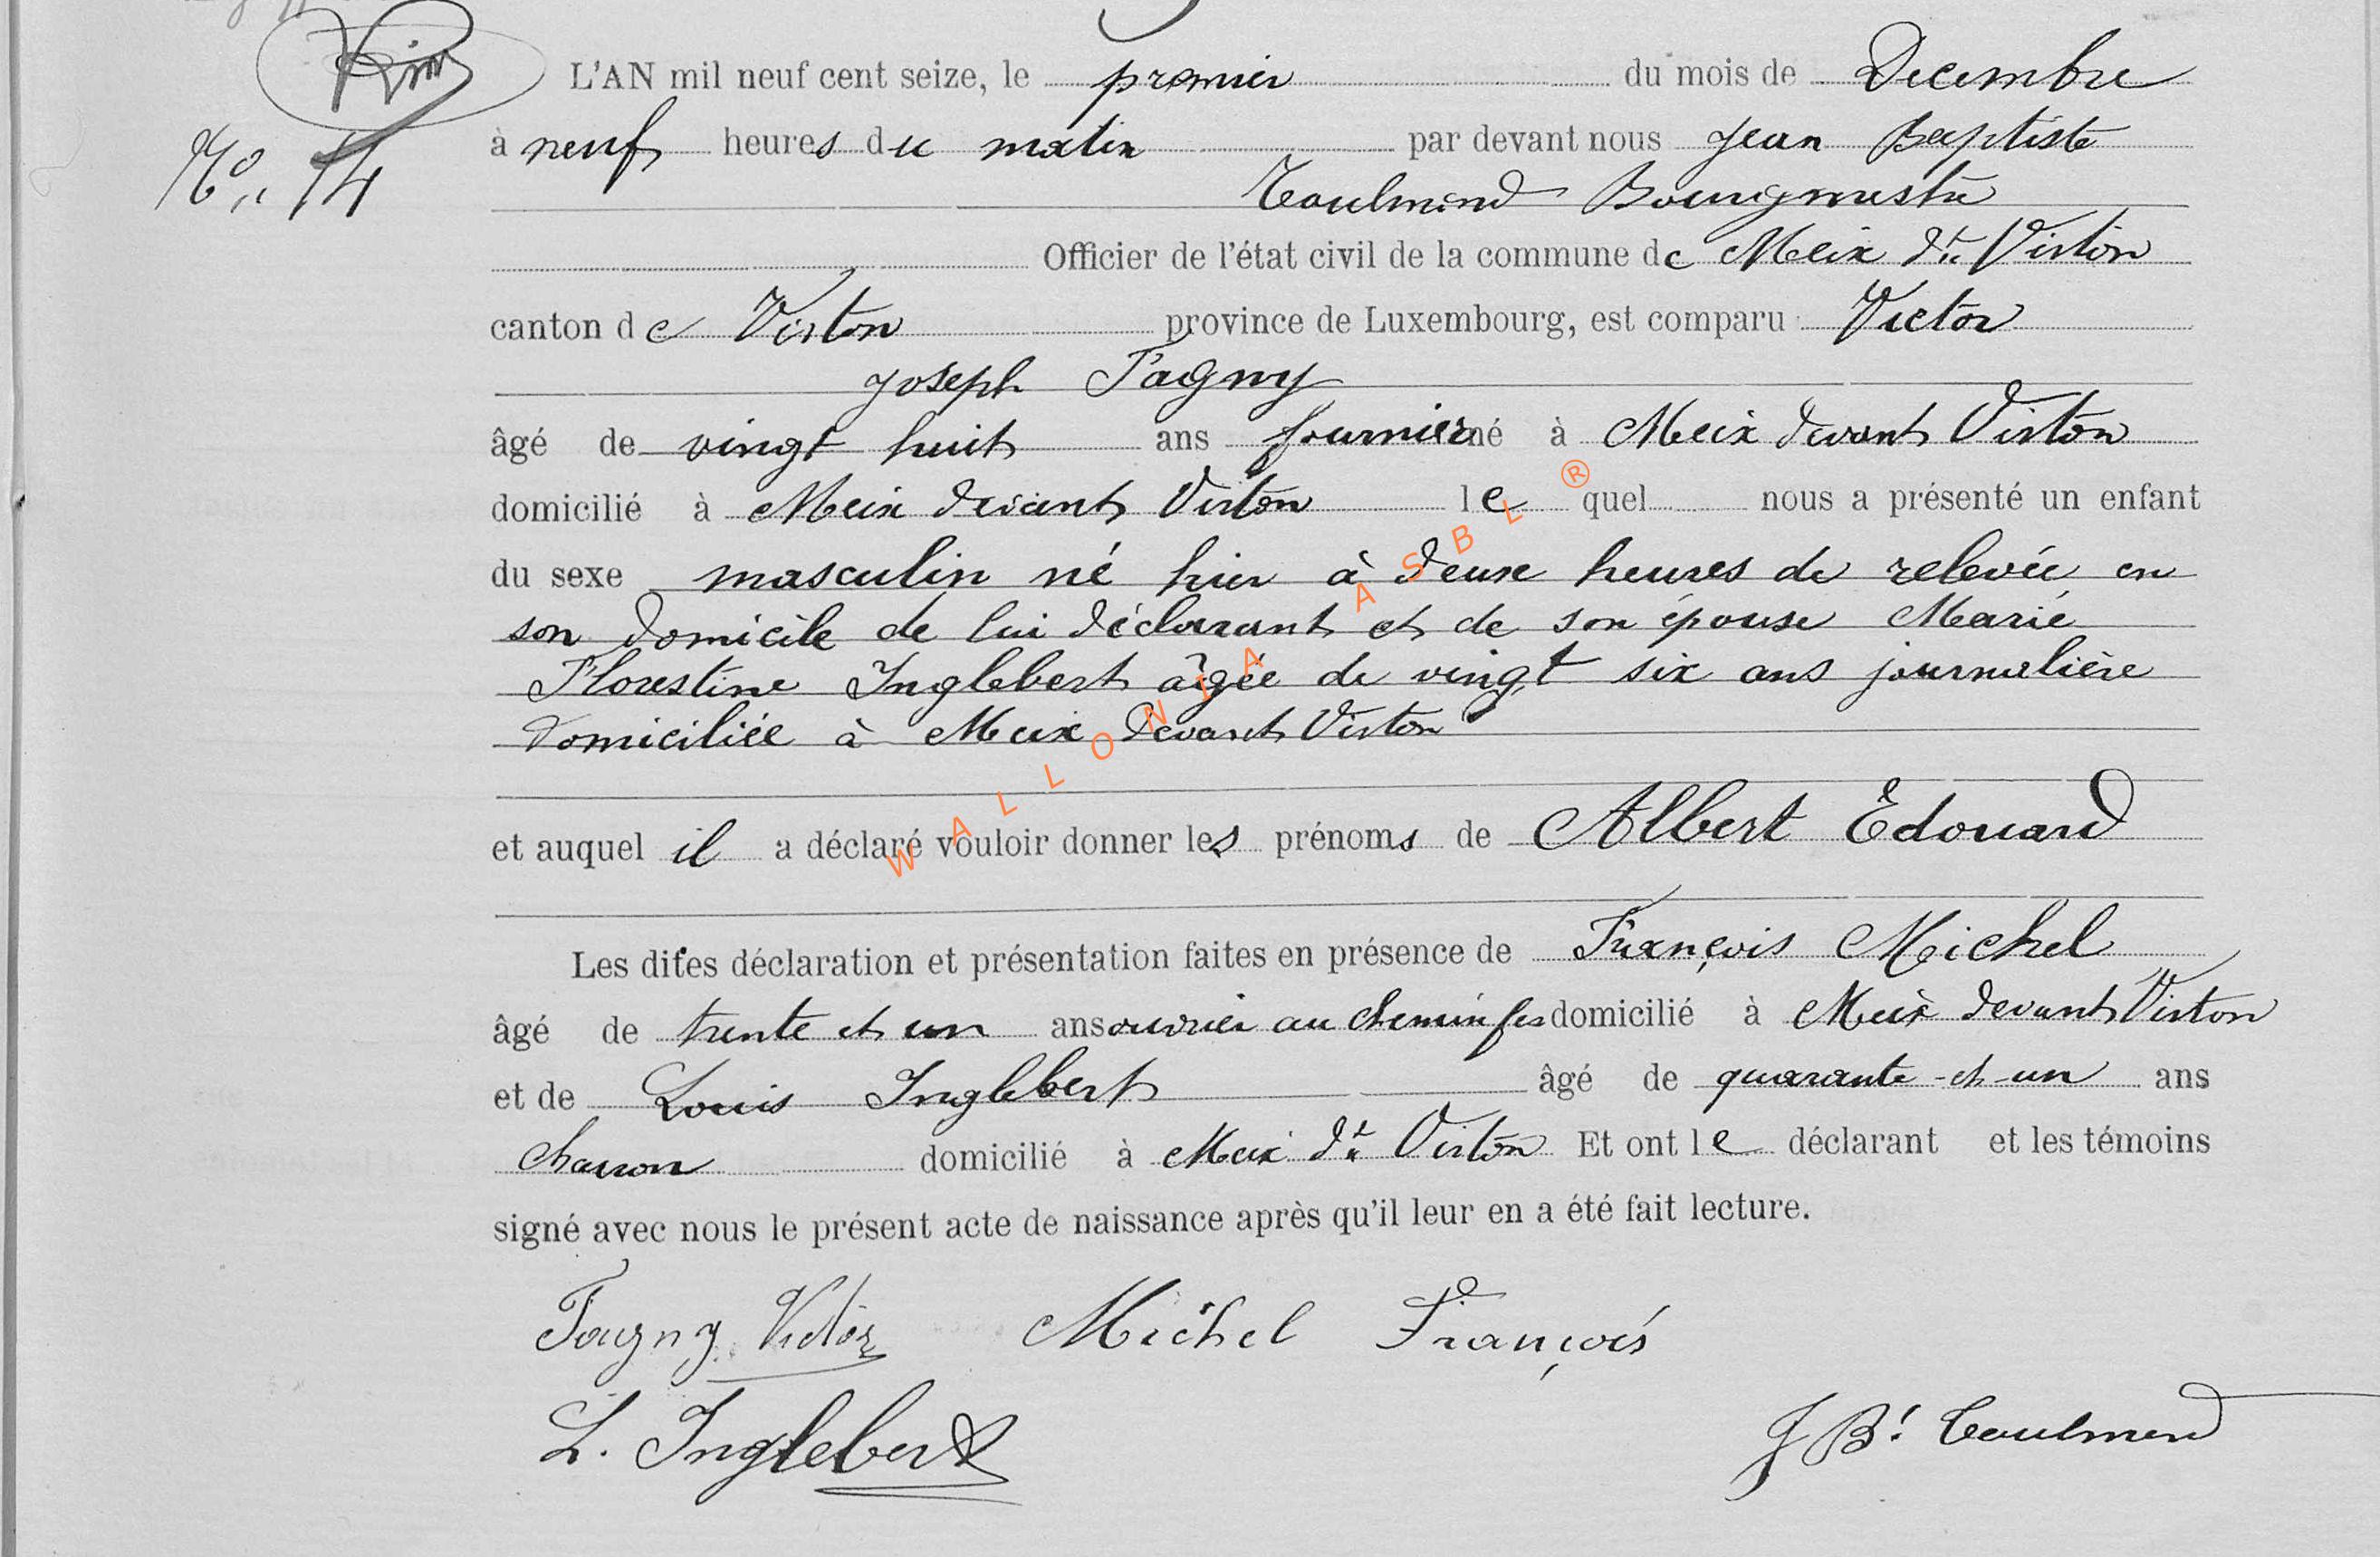 L'AN mil neuf cent seize, le premier du mois de Decembre
N° 14
à neuf heures du matin par devant nous Jean Baptiste
Toulmond Bourgmestre
Officier de l'état civil de la commune de Meix dt Virton
canton de Virton province de Luxembourg, est comparu Victor
Joseph Fagny
âgé de vingt huit ans fournier né à Meix devant Virton
domicilié à Meix devant Virton lequel nous a présenté un enfant
du sexe masculin né hier à deux heures de relevée en
son domicile de lui déclarant et de son épouse Marie
Florestine Inglebert âgée de vingt six ans journalière
domiciliée à Meix devant Virton
et auquel il a déclaré vouloir donner les prénoms de Albert Edouard
Les dites déclaration et présentation faites en présence de François Michel
âgé de trente et un ans ouvrier au chemin fer domicilié à Meix devant Virton
et de Louis Inglebert âgé de quarante-et-un ans
charron domicilié à Meix dt Virton Et ont le déclarant et les témoins
signé avec nous le présent acte de naissance après qu'il leur en a été fait lecture.
Fagny Victor Michel François
L. Inglebert JBt Toulmond
WALLONIA ASBL ®